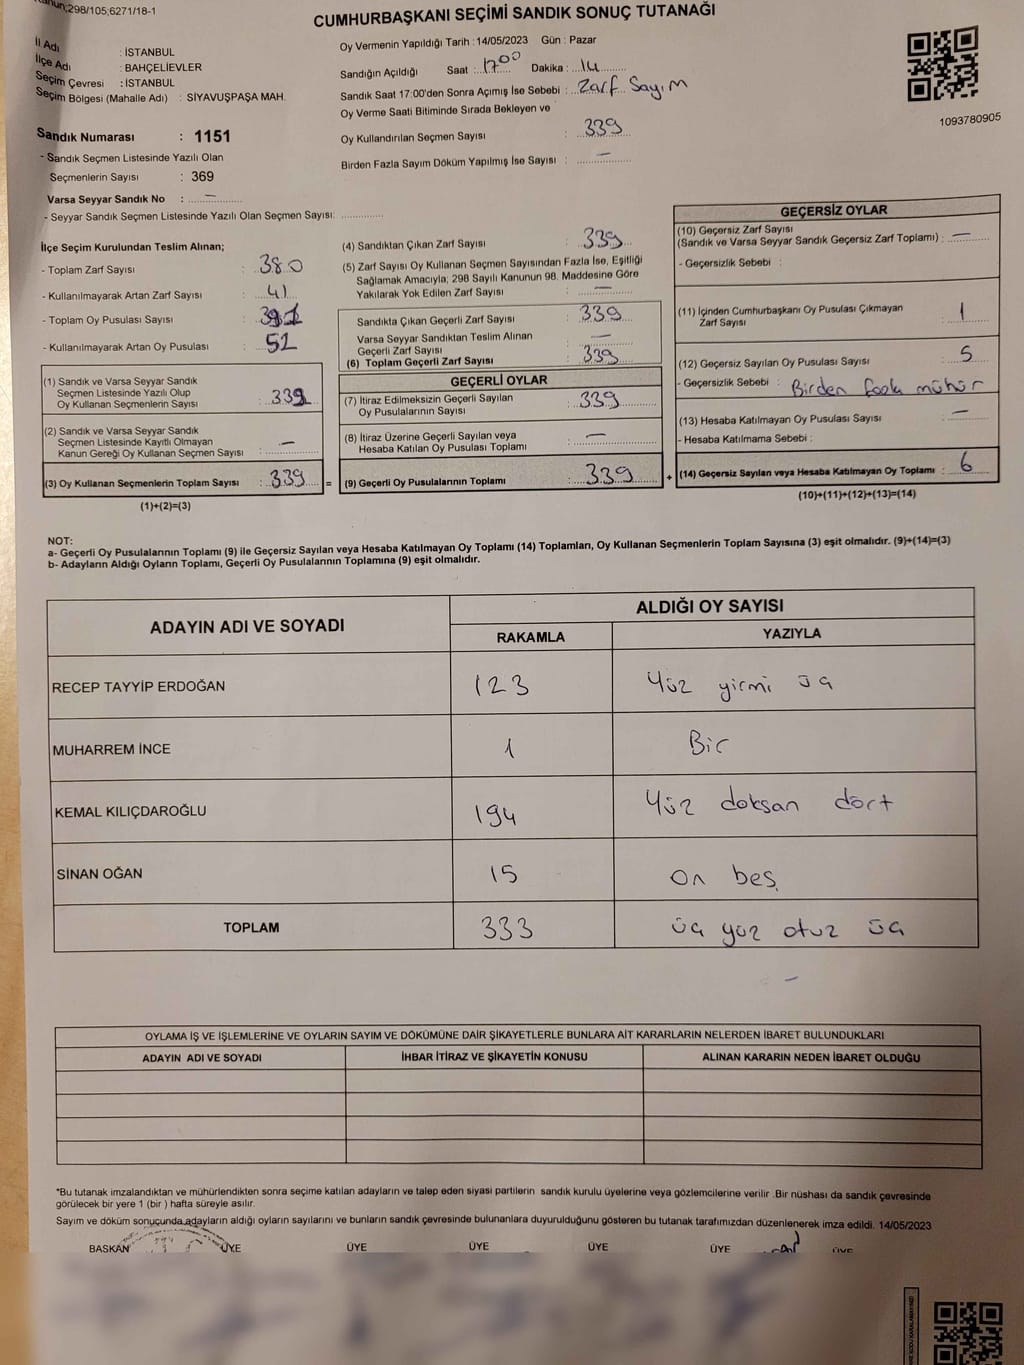 298/105;6271/18-1
CUMHURBAŞKANI SEÇİMİ SANDIK SONUÇ TUTANAĞI
İl Adı : İSTANBUL
İlçe Adı : BAHÇELİEVLER
Seçim Çevresi : İSTANBUL
Seçim Bölgesi (Mahalle Adı) : SİYAVUŞPAŞA MAH.
Oy Vermenin Yapıldığı Tarih : 14/05/2023 Gün : Pazar
Sandığın Açıldığı Saat : 17 00 Dakika : 14
Sandık Saat 17:00'den Sonra Açımış İse Sebebi : Zarf Sayım
Oy Verme Saati Bitiminde Sırada Bekleyen ve
Oy Kullandırılan Seçmen Sayısı : 339
Birden Fazla Sayım Döküm Yapılmış İse Sayısı : —
1093780905
Sandık Numarası : 1151
- Sandık Seçmen Listesinde Yazılı Olan
Seçmenlerin Sayısı : 369
Varsa Seyyar Sandık No : —
- Seyyar Sandık Seçmen Listesinde Yazılı Olan Seçmen Sayısı:
İlçe Seçim Kurulundan Teslim Alınan;
- Toplam Zarf Sayısı : 380
- Kullanılmayarak Artan Zarf Sayısı : 41
- Toplam Oy Pusulası Sayısı :
- Kullanılmayarak Artan Oy Pusulası : 52
(1) Sandık ve Varsa Seyyar Sandık
Seçmen Listesinde Yazılı Olup
Oy Kullanan Seçmenlerin Sayısı : 339
(2) Sandık ve Varsa Seyyar Sandık
Seçmen Listesinde Kayıtlı Olmayan
Kanun Gereği Oy Kullanan Seçmen Sayısı : —
(3) Oy Kullanan Seçmenlerin Toplam Sayısı : 339 =
(1)+(2)=(3)
(4) Sandıktan Çıkan Zarf Sayısı : 339
(5) Zarf Sayısı Oy Kullanan Seçmen Sayısından Fazla İse, Eşitliği
Sağlamak Amacıyla; 298 Sayılı Kanunun 98. Maddesine Göre
Yakılarak Yok Edilen Zarf Sayısı : —
Sandıkta Çıkan Geçerli Zarf Sayısı : 339
Varsa Seyyar Sandıktan Teslim Alınan
Geçerli Zarf Sayısı : —
(6) Toplam Geçerli Zarf Sayısı : 339
GEÇERLİ OYLAR
(7) İtiraz Edilmeksizin Geçerli Sayılan
Oy Pusulalarının Sayısı : 339
(8) İtiraz Üzerine Geçerli Sayılan veya
Hesaba Katılan Oy Pusulası Toplamı : —
(9) Geçerli Oy Pusulalarının Toplamı : 339 +
GEÇERSİZ OYLAR
(10) Geçersiz Zarf Sayısı
(Sandık ve Varsa Seyyar Sandık Geçersiz Zarf Toplamı) : —
- Geçersizlik Sebebi :
(11) İçinden Cumhurbaşkanı Oy Pusulası Çıkmayan
Zarf Sayısı : 1
(12) Geçersiz Sayılan Oy Pusulası Sayısı : 5
- Geçersizlik Sebebi : Birden fazla mühür
(13) Hesaba Katılmayan Oy Pusulası Sayısı : —
- Hesaba Katılmama Sebebi :
(14) Geçersiz Sayılan veya Hesaba Katılmayan Oy Toplamı : 6
(10)+(11)+(12)+(13)=(14)
NOT:
a- Geçerli Oy Pusulalarının Toplamı (9) ile Geçersiz Sayılan veya Hesaba Katılmayan Oy Toplamı (14) Toplamları, Oy Kullanan Seçmenlerin Toplam Sayısına (3) eşit olmalıdır. (9)+(14)=(3)
b- Adayların Aldığı Oyların Toplamı, Geçerli Oy Pusulalarının Toplamına (9) eşit olmalıdır.
ADAYIN ADI VE SOYADI ALDIĞI OY SAYISI
RAKAMLA YAZIYLA
RECEP TAYYİP ERDOĞAN 123 Yüz yirmi üç
MUHARREM İNCE 1 Bir
KEMAL KILIÇDAROĞLU 194 Yüz doksan dört
SİNAN OĞAN 15 On beş
TOPLAM 333 üç yüz otuz üç
OYLAMA İŞ VE İŞLEMLERİNE VE OYLARIN SAYIM VE DÖKÜMÜNE DAİR ŞİKAYETLERLE BUNLARA AİT KARARLARIN NELERDEN İBARET BULUNDUKLARI
ADAYIN ADI VE SOYADI İHBAR İTİRAZ VE ŞİKAYETİN KONUSU ALINAN KARARIN NEDEN İBARET OLDUĞU
*Bu tutanak imzalandıktan ve mühürlendikten sonra seçime katılan adayların ve talep eden siyasi partilerin sandık kurulu üyelerine veya gözlemcilerine verilir .Bir nüshası da sandık çevresinde
görülecek bir yere 1 (bir ) hafta süreyle asılır.
Sayım ve döküm sonuçunda adayların aldığı oyların sayılarını ve bunların sandık çevresinde bulunanlara duyurulduğunu gösteren bu tutanak tarafımızdan düzenlenerek imza edildi. 14/05/2023
BAŞKAN ÜYE ÜYE ÜYE ÜYE ÜYE ÜYE